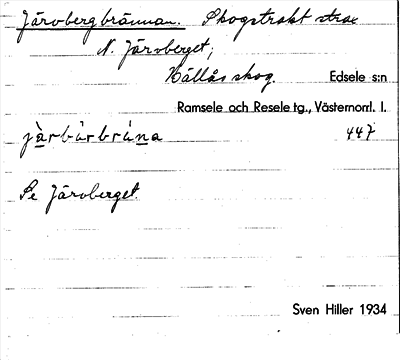 Järvbergbrännan. Skogstrakt strax
N. Järvberget;
Hällås skog. Edsele s:n
Ramsele och Resele tg., Västernorrl. l.
jàrbàrbràna 447
Se Järvberget.
Sven Hiller 1934